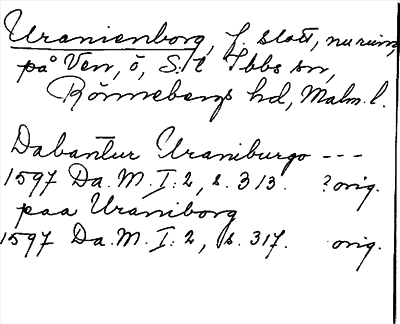 Uranienborg, f. slott, nu ruin,
på Ven, ö, S:t Ibbs sn,
Rönnebergs hd, Malm. l.
Dabantur Uraniburgo ---
1597 Da. M. I: 2, s. 313. ? orig.
paa Uraniborg
1597 Da. M. I: 2, s. 317. orig.